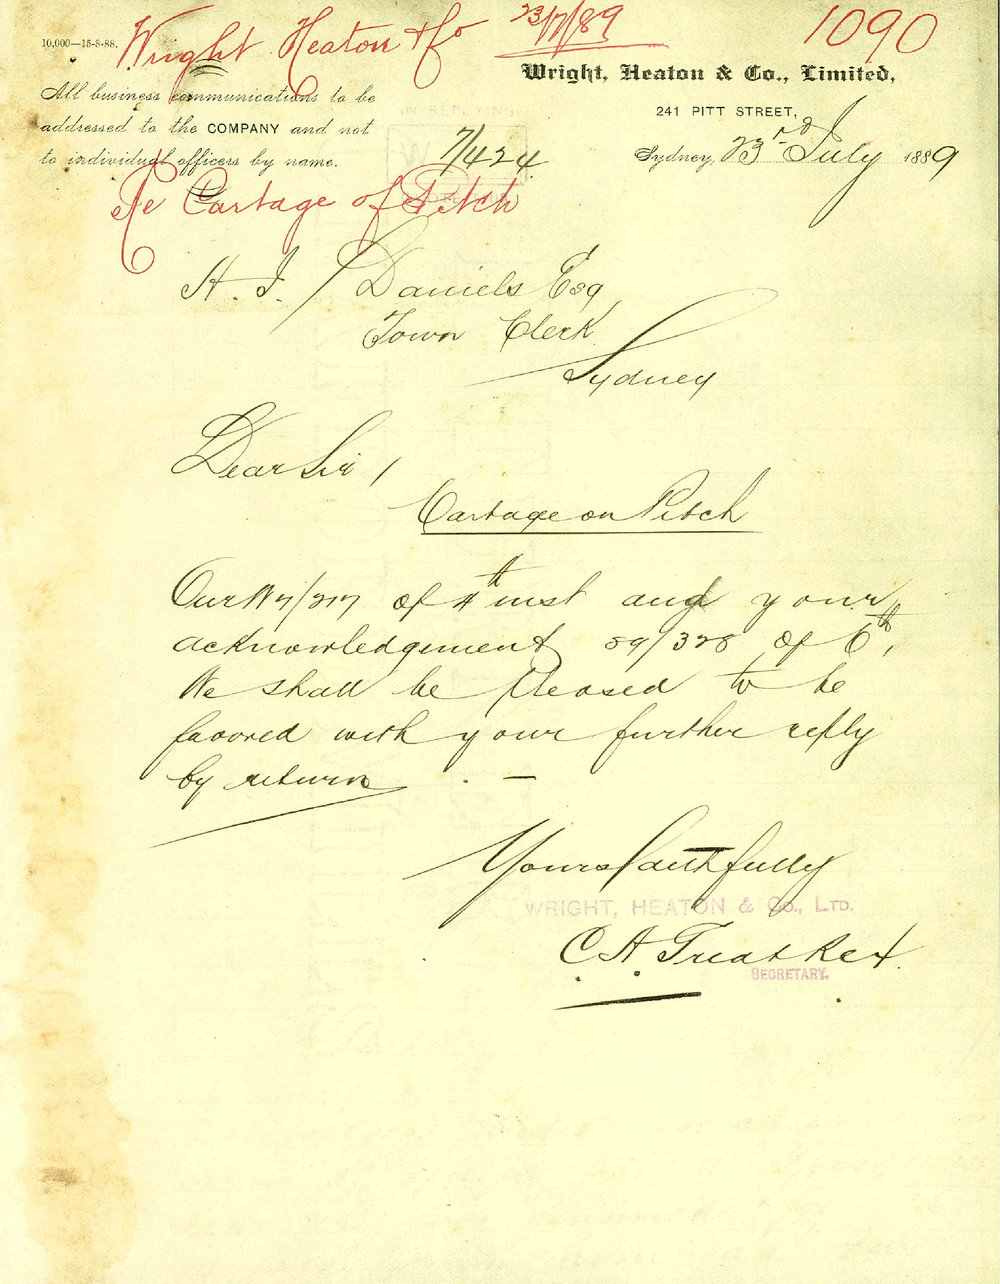 Wright Heaton & Co 23/7/89 1090
10,000—15-8-88.
Wright, Heaton & Co., Limited,
241 PITT STREET,
All business communications to be
addressed to the COMPANY and not
to individual officers by name.
IN REPLYING
7/424
Sydney, 23rd July 1889
Re Cartage of Pitch
H. J. Daniels Esq
Town Clerk
Sydney
Dear Sir,
Cartage on Pitch
Our W7/217 of 4th inst and your
acknowledgement 89/328 of 6th,
We shall be pleased to be
favored with your further reply
by return. —
Yours faithfully
WRIGHT, HEATON & Co., LTD.
C A
SECRETARY.